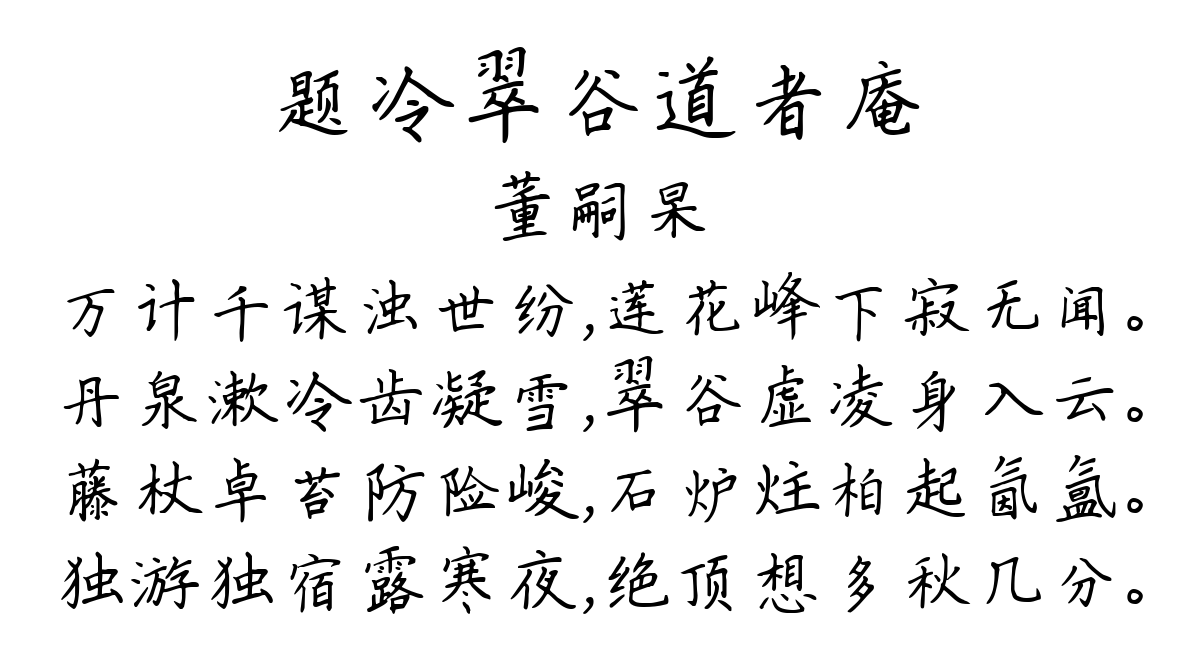 题冷翠谷道者庵
董嗣杲
万计千谋浊世纷,莲花峰下寂无闻。
丹泉漱冷齿凝雪,翠谷虚凌身入云。
藤杖卓苔防险峻,石炉炷柏起氤氲。
独游独宿露寒夜,绝顶想多秋几分。